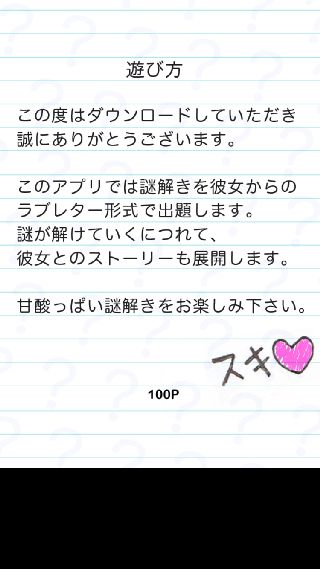 遊び方
この度はダウンロードしていただき
誠にありがとうございます。
このアプリでは謎解きを彼女からの
ラブレター形式で出題します。
謎が解けていくにつれて、
彼女とのストーリーも展開します。
甘酸っぱい謎解きをお楽しみ下さい。
スキ
100P